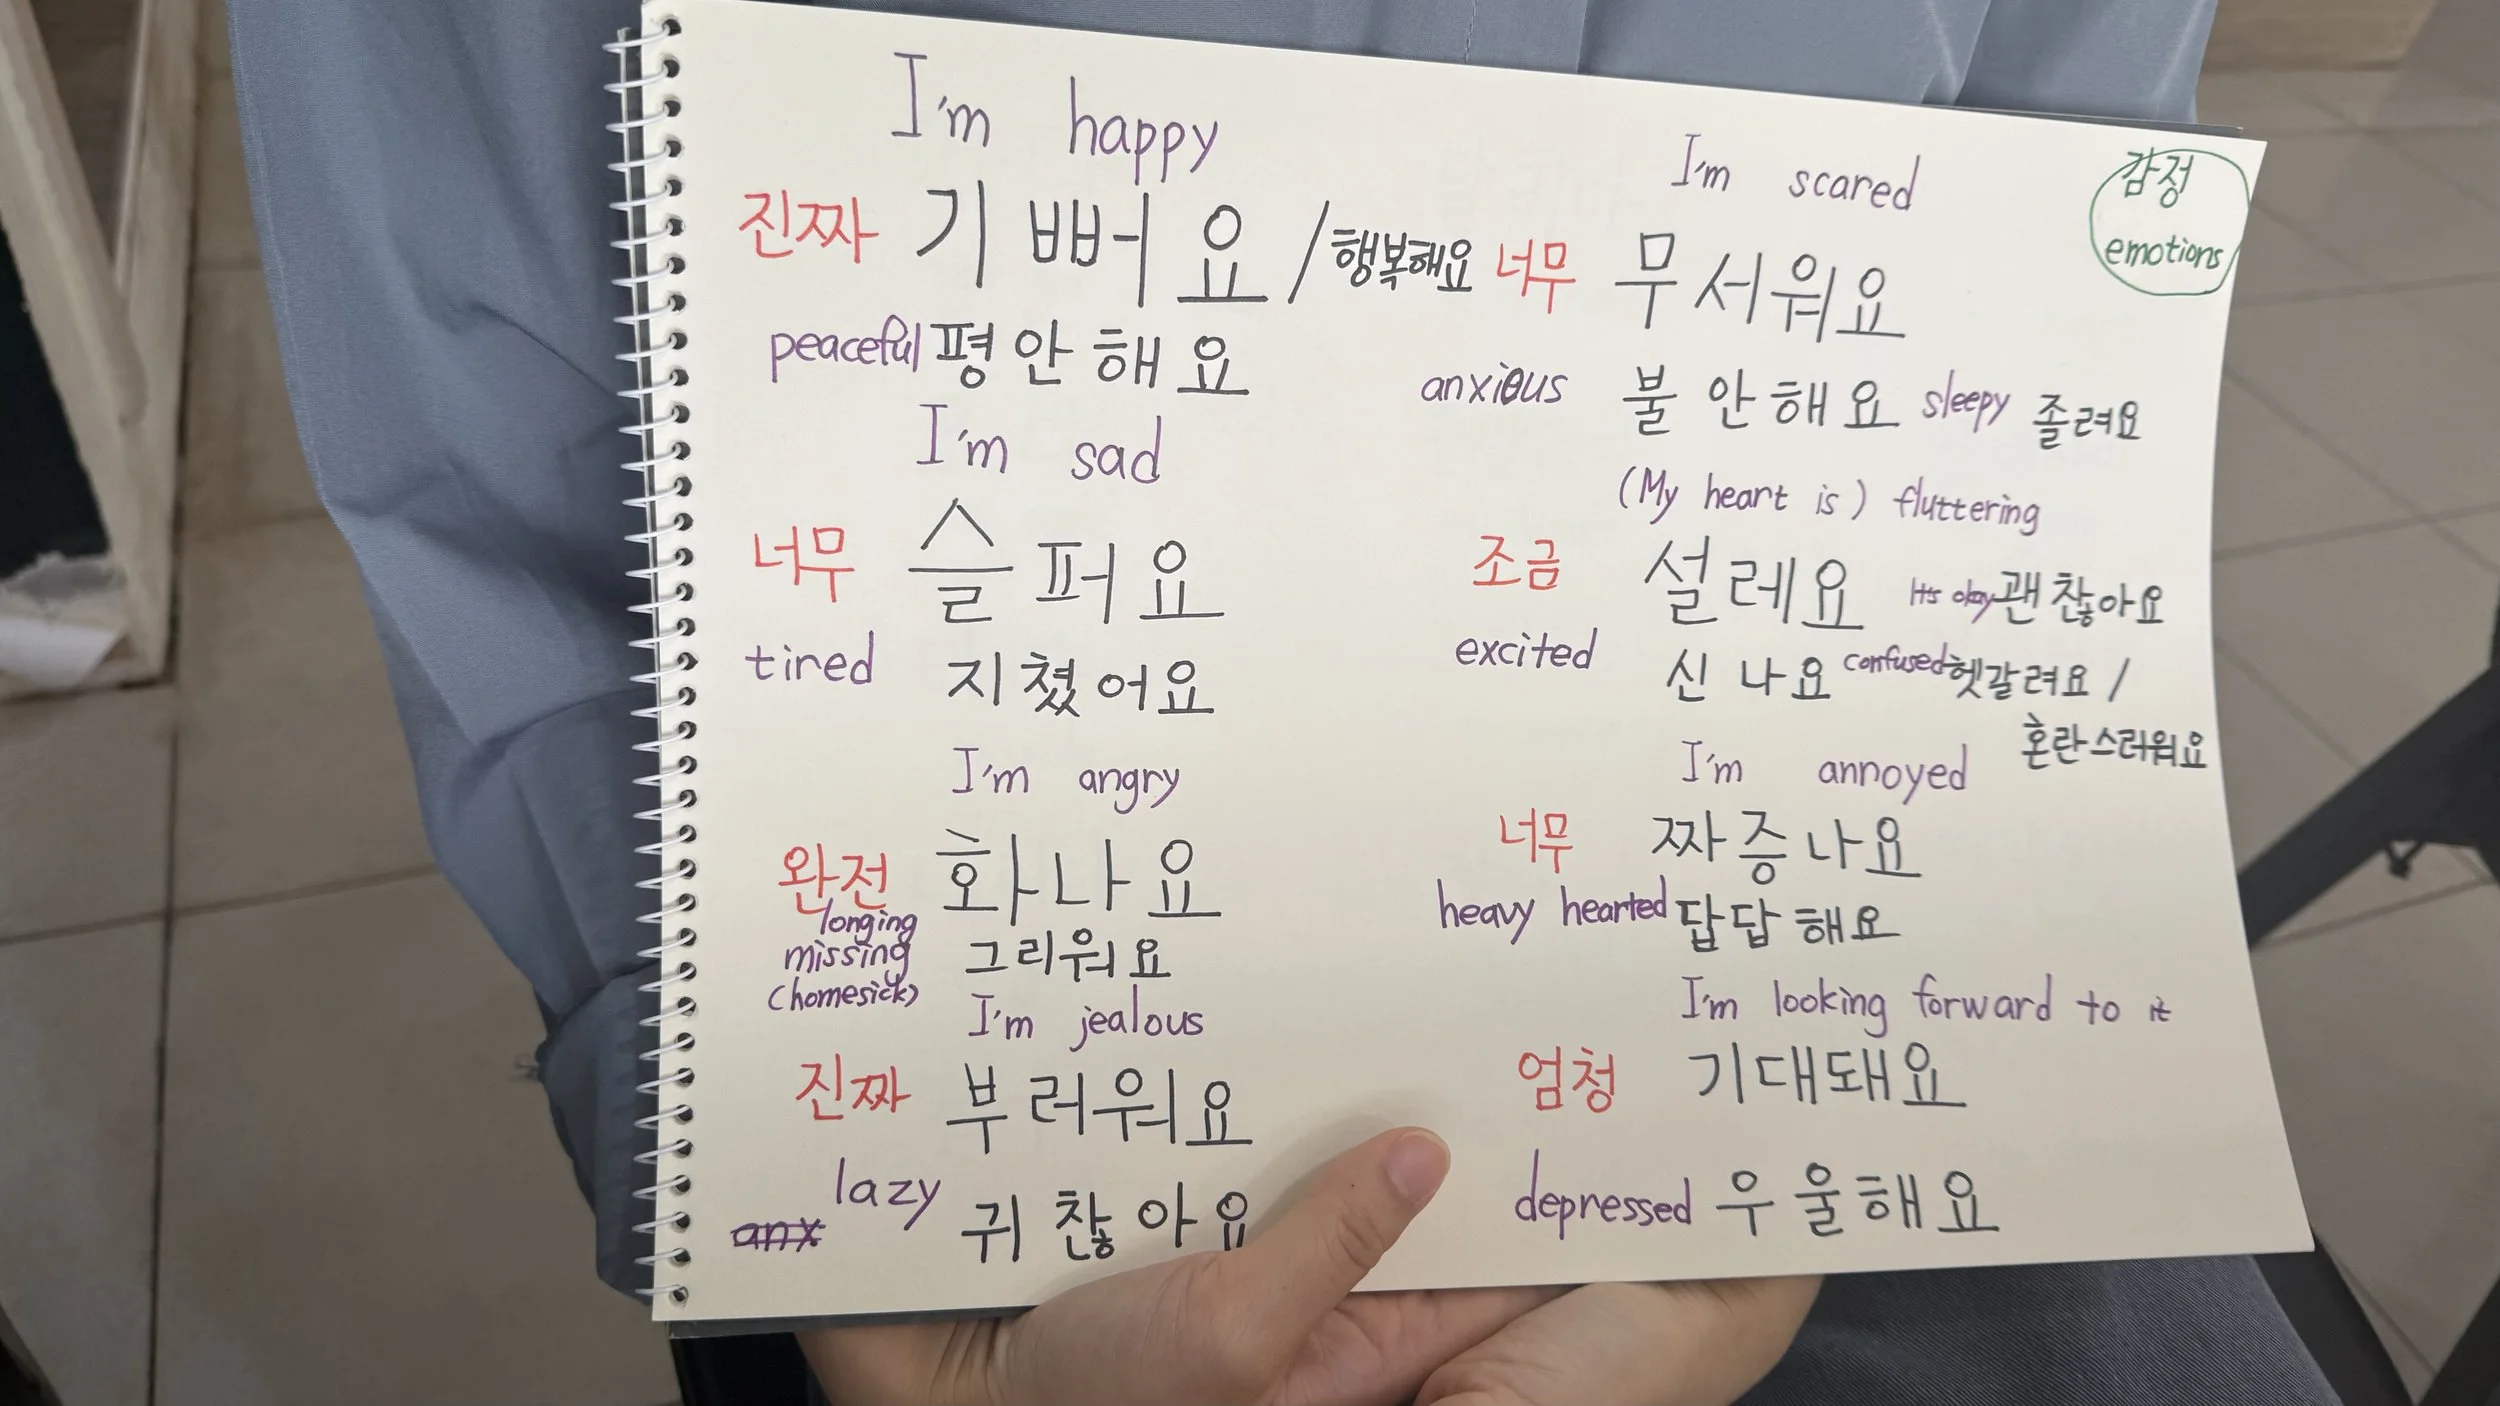 I'm happy
진짜 기뻐요 / 행복해요
peaceful 평안해요
I'm sad
너무 슬퍼요
tired 지쳤어요
I'm angry
완전 화나요
longing
missing 그리워요
(homesick)
I'm jealous
진짜 부러워요
lazy 귀찮아요
anx
감정
emotions
I'm scared
너무 무서워요
anxious 불안해요 sleepy 졸려요
(My heart is) fluttering
조금 설레요 It's okay 괜찮아요
excited 신나요 confused 헷갈려요 /
혼란스러워요
I'm annoyed
너무 짜증나요
heavy hearted 답답해요
I'm looking forward to it
엄청 기대돼요
depressed 우울해요